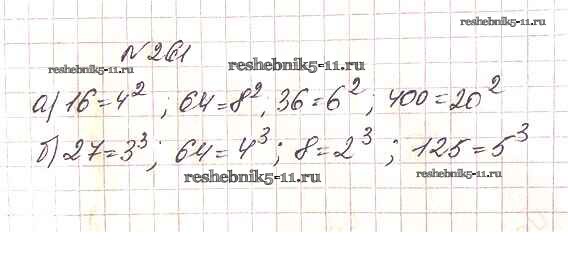 reshebnik5-11.ru
№261
reshebnik5-11.ru reshebnik5-11.ru
а) 16=4²; 64=8²; 36=6²; 400=20²
б) 27=3³; 64=4³; 8=2³; 125=5³
reshebnik5-11.ru reshebnik5-11.ru